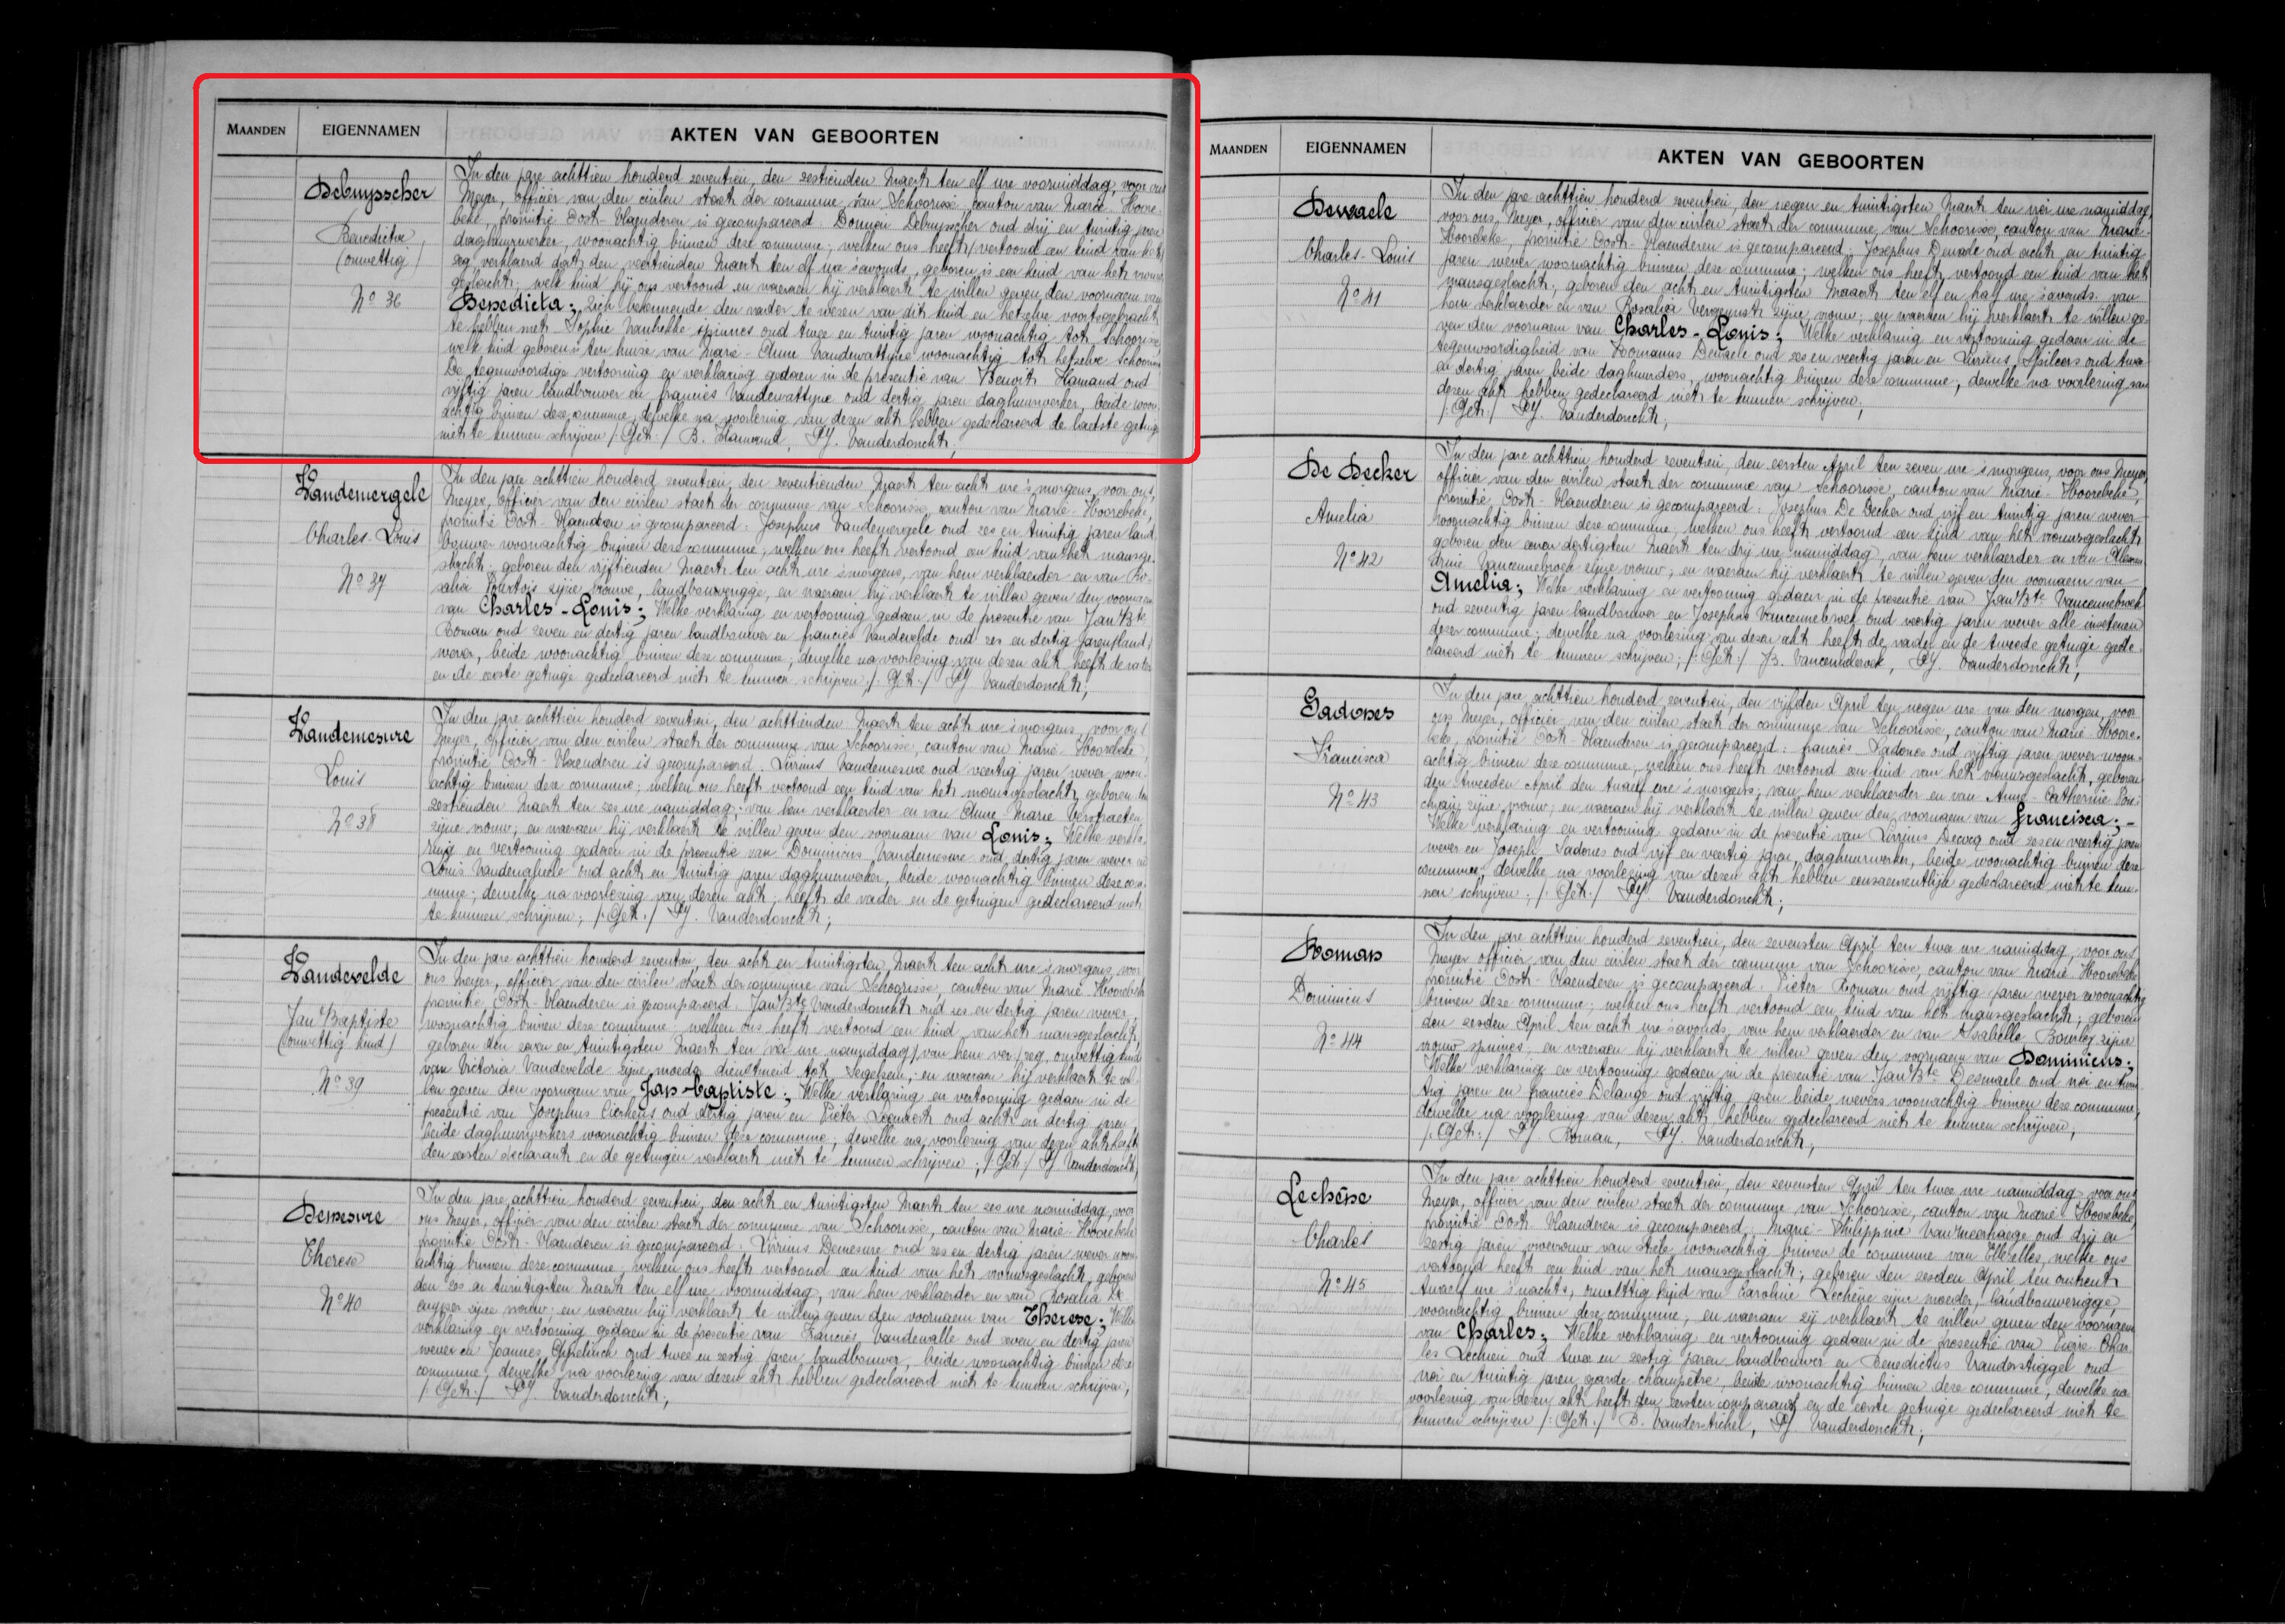 MAANDEN EIGENNAMEN AKTEN VAN GEBOORTEN
Debuysscher
Benedicta
(onwettig)
Nº 36
In den jare achttien honderd zeventien, den zestienden Maert ten elf ure voormiddag, voor ons
Meyer, officier van den civilen staet der commune van Schoorisse, canton van Marie-Hoore-
beke, provintie Oost-Vlaenderen is gecompareerd: Domien Debuysscher oud drij en twintig jaren
daghuurwerker, woonachtig binnen deze commune; welken ons heeft (vertoond een kind van het)
zeg, verklaerd dat den veertienden Maert ten elf ure s'avonds, geboren is een kind van het vrouw-
geslacht; welk kind hij ons vertoond en waeraen hij verklaert te willen geven den voornaem van
Benedicta; zich bekennende den vader te wezen van dit kind en hetzelve voortgebracht
te hebben met Sophie Vanhekke spinnes oud twee en twintig jaren woonachtig tot Schoorisse
welk kind geboren is ten huise van Marie-Anne Vandewattyne woonachtig tot hetzelve Schoorisse
De tegenwoordige vertooning en verklaring gedaen in de presentie van Benoit Hamand oud
vijftig jaren landbouwer en francies Vandewattyne oud dertig jaren daghuurwerker, beide woon-
achtig binnen deze commune, dewelke na voorlezing van dezen akt hebben gedeclareerd de laetste getuige
niet te kunnen schrijven /:Get:/ B. Hamand, PJ. Vanderdonckt;
Vandemergele
Charles-Louis
Nº 37
In den jare achttien honderd zeventien, den zeventienden Maert ten acht ure s'morgens, voor ons,
Meyer, officier van den civilen staet der commune van Schoorisse, canton van Marie-Hoorebeke,
provintie Oost-Vlaenderen is gecompareerd: Josephus Vandemergele oud zes en twintig jaren land-
bouwer woonachtig binnen deze commune; welken ons heeft vertoond een kind van het mansge-
slacht; geboren den vijftienden Maert ten acht ure s'morgens, van hem verklaerder en van Ro-
salia zijne vrouwe, landbouwerigge, en waeraen hij verklaert te willen geven den voornaem
van Charles-Louis; Welke verklaring en vertooning gedaen in de presentie van Jan Bte
Roman oud zeven en dertig jaren landbouwer en francies Vandevelde oud zes en dertig jaren (land)
wever, beide woonachtig binnen deze commune; dewelke na voorlezing van dezen akt heeft de vader
en de eerste getuige gedeclareerd niet te kunnen schrijven /:Get:/ PJ Vanderdonckt;
Vandemesure
Louis
Nº 38
In den jare achttien honderd zeventien, den achttienden Maert ten acht ure s'morgens voor ons
Meyer, officier van den civilen staet der commune van Schoorisse, canton van Marie-Hoorebeke,
provintie Oost-Vlaenderen is gecompareerd: Livinus Vandemesure oud veertig jaren wever woon-
achtig binnen deze commune; welken ons heeft vertoond een kind van het mansgeslacht, geboren den
zestienden Maert ten zes ure namiddag; van hem verklaerder en van Anne-Marie Verstraeten
zijne vrouw; en waeraen hij verklaert te willen geven den voornaem van Louis; Welke verkla-
ring en vertooning gedaen in de presentie van Dominicus Vandemesure oud dertig jaren wever en
Louis Vandenabeele oud acht en twintig jaren daghuurwerker, beide woonachtig binnen deze com-
mune; dewelke na voorlezing van dezen akt; heeft de vader en de getuigen gedeclareerd niet
te kunnen schrijven; /:Get:/ PJ. Vanderdonckt;
Vandevelde
Jan Baptiste
(onwettig kind)
Nº 39
In den jare achttien honderd zeventien, den acht en twintigsten Maert ten acht ure s'morgens voor
ons Meyer, officier van den civilen staet der commune van Schoorisse, canton van Marie-Hoorebeke
provintie Oost-Vlaenderen is gecompareerd: Jan Bte Vanderdonckt oud zes en dertig jaren wever,
woonachtig binnen deze commune; welken ons heeft vertoond een kind van het mansgeslacht,
geboren den zeven en twintigsten Maert ten vier ure namiddag, van hem ver/ zeg, onwettig kind
van Victoria Vandevelde zijne moeder dienstmeid tot Segelsem; en waeraen hij verklaert te wil-
len geven den voornaem van Jan-baptiste; Welke verklaring en vertooning gedaen in de
presentie van Josephus oud dertig jaren en Pieter oud acht en dertig jaren
beide daghuurwerkers woonachtig binnen deze commune; dewelke na voorlezing van dezen akt heeft
den eersten declarant en de getuigen verklaert niet te kunnen schrijven; /:Get:/ PJ Vanderdonckt,
Demesure
Therese
Nº 40
In den jare achttien honderd zeventien, den acht en twintigsten Maert ten zes ure namiddag, voor
ons Meyer, officier van den civilen staet der commune van Schoorisse, canton van Marie-Hoorebeke
provintie Oost-Vlaenderen is gecompareerd: Livinus Demesure oud zes en dertig jaren wever woon-
achtig binnen deze commune, welken ons heeft vertoond een kind van het vrouwsgeslacht, geboren
den zes en twintigsten Maert ten elf ure voormiddag, van hem verklaerder en van Rosalia De
cuyper zijne vrouw; en waeraen hij verklaert te willen geven den voornaem van Therese; Welke
verklaring en vertooning gedaen in de presentie van Francies Vandewalle oud zeven en dertig jaren
wever en Joannes oud twee en zestig jaren, landbouwer, beide woonachtig binnen deze
commune; dewelke na voorlezing van dezen akt hebben gedeclareerd niet te kunnen schrijven,
/:Get:/ PJ. Vanderdonckt;
MAANDEN EIGENNAMEN AKTEN VAN GEBOORTEN
Dewaele
Charles-Louis
Nº 41
In den jare achttien honderd zeventien, den negen en twintigsten Maert ten vier ure namiddag,
voor ons, Meyer, officier van den civilen staet der commune, van Schoorisse, canton van Marie-
Hoorebeke, provintie Oost-Vlaenderen is gecompareerd: Josephus Dewaele oud acht en twintig
jaren wever woonachtig binnen deze commune; welken ons heeft vertoond een kind van het
mansgeslacht; geboren den acht en twintigsten Maaert ten elf en half ure s'avonds van
hem verklaerder en van Rosalia zijne vrouw; en waeraen hij verklaert te willen ge-
ven den voornaem van Charles-Louis; Welke verklaring en vertooning gedaen in de
tegenwoordigheid van Romanus Dewaele oud zes en veertig jaren en Livinus Spileers oud twee
en dertig jaren beide daghuurders, woonachtig binnen deze commune, dewelke na voorlezing van
dezen akt hebben gedeclareerd niet te kunnen schrijven;
/:Get:/ PJ. Vanderdonckt;
De Decker
Amelia
Nº 42
In den jare achttien honderd zeventien, den eersten April ten zeven ure s'morgens, voor ons Meyer,
officier van den civilen staet der commune van Schoorisse, canton van Marie-Hoorebeke,
provintie Oost-Vlaenderen is gecompareerd: Josephus De Decker oud vijf en twintig jaren wever
woonachtig binnen deze commune, welken ons heeft vertoond een kind van het vrouwsgeslacht
geboren den eenen dertigsten Maert ten drij ure namiddag, van hem verklaerder en van Alexan-
drine Vancennebroek zijne vrouw; en waeraen hij verklaert te willen geven den voornaem van
Amelia; Welke verklaring en vertooning gedaen in de presentie van Jan Bte Vancennebroek
oud zeventig jaren landbouwer en Josephus Vancennebroek oud veertig jaren wever alle insetenen
dezer commune; dewelke na voorlezing van dezen akt heeft de vader en de tweede getuige gede-
clareerd niet te kunnen schrijven; /:Get:/ JB. Vancennebroek, PJ. Vanderdonckt;
Sadones
Francisca
Nº 43
In den jare achttien honderd zeventien, den vijfden April ten negen ure van den morgen, voor
ons Meyer, officier van den civilen staet der commune van Schoorisse, canton van Marie-Hoore-
beke, provintie Oost-Vlaenderen is gecompareerd: francies Sadones oud vijftig jaren wever woon-
achtig binnen deze commune, welken ons heeft vertoond een kind van het vrouwsgeslacht, geboren
den tweeden April den twaelf ure s'morgens, van hem verklaerder en van Anne-Catherine
zijne vrouw; en waeraen hij verklaert te willen geven den voornaem van francisca;-
Welke verklaring en vertooning gedaen in de presentie van Livinus Decocq oud zes en veertig jaren
wever en Joseph Sadones oud vijf en veertig jaren, daghuurwerker, beide woonachtig binnen deze
commune; dewelke na voorlezing van dezen akt hebben eensaementlijk gedeclareerd niet te kun-
nen schrijven; /:Get:/ PJ. Vanderdonckt;
Roman
Dominicus
Nº 44
In den jare achttien honderd zeventien, den zevensten April ten twee ure namiddag, voor ons
Meyer officier van den civilen staet der commune van Schoorisse, canton van Marie-Hoorebeke
provintie Oost-Vlaenderen is gecompareerd: Pieter Roman oud vijftig jaren wever woonachtig
binnen deze commune; welken ons heeft vertoond een kind van het mansgeslacht; geboren
den zesden April ten acht ure s'avonds, van hem verklaerder en van Isabelle zijne
vrouw spinnes; en waeraen hij verklaert te willen geven den voornaem van Dominicus;
Welke verklaring en vertooning gedaen in de presentie van Jan Bte Desmaele oud vier en twin-
tig jaren en francies Delange oud vijftig jaren beide wevers woonachtig binnen deze commune,
dewelke na voorlezing van dezen akt, hebben gedeclareerd niet te kunnen schrijven;
/:Get:/ PJ Roman, PJ. Vanderdonckt;
Lechêne
Charles
Nº 45
In den jare achttien honderd zeventien, den zevensten April ten twee ure namiddag voor ons
Meyer, officier van den civilen staet der commune van Schoorisse, canton van Marie-Hoorebeke,
provintie Oost-Vlaenderen is gecompareerd: Marie-Philippine Vanmeerhaege oud drij en
zestig jaren vroevrouw van stiele woonachtig binnen de commune van Ellezelles, welke ons
vertoond heeft een kind van het mansgeslacht; geboren den zesden April ten omtrent
twaelf ure s'nachts, onwettig kind van Caroline Lechêne zijne moeder, landbouwerigge,
woonachtig binnen deze commune, en waeraen zij verklaert te willen geven den voornaem
van Charles; Welke verklaring en vertooning gedaen in de presentie van Pierre-Char-
les oud twee en zestig jaren landbouwer en Benedictus Vanderstiggel oud
vier en twintig jaren, garde champêtre, beide woonachtig binnen deze commune, dewelke na
voorlezing van dezen akt heeft den eersten comparant en de eerste getuige gedeclareerd niet te
kunnen schrijven /:Get:/ B. Vanderstichel, PJ. Vanderdonckt;